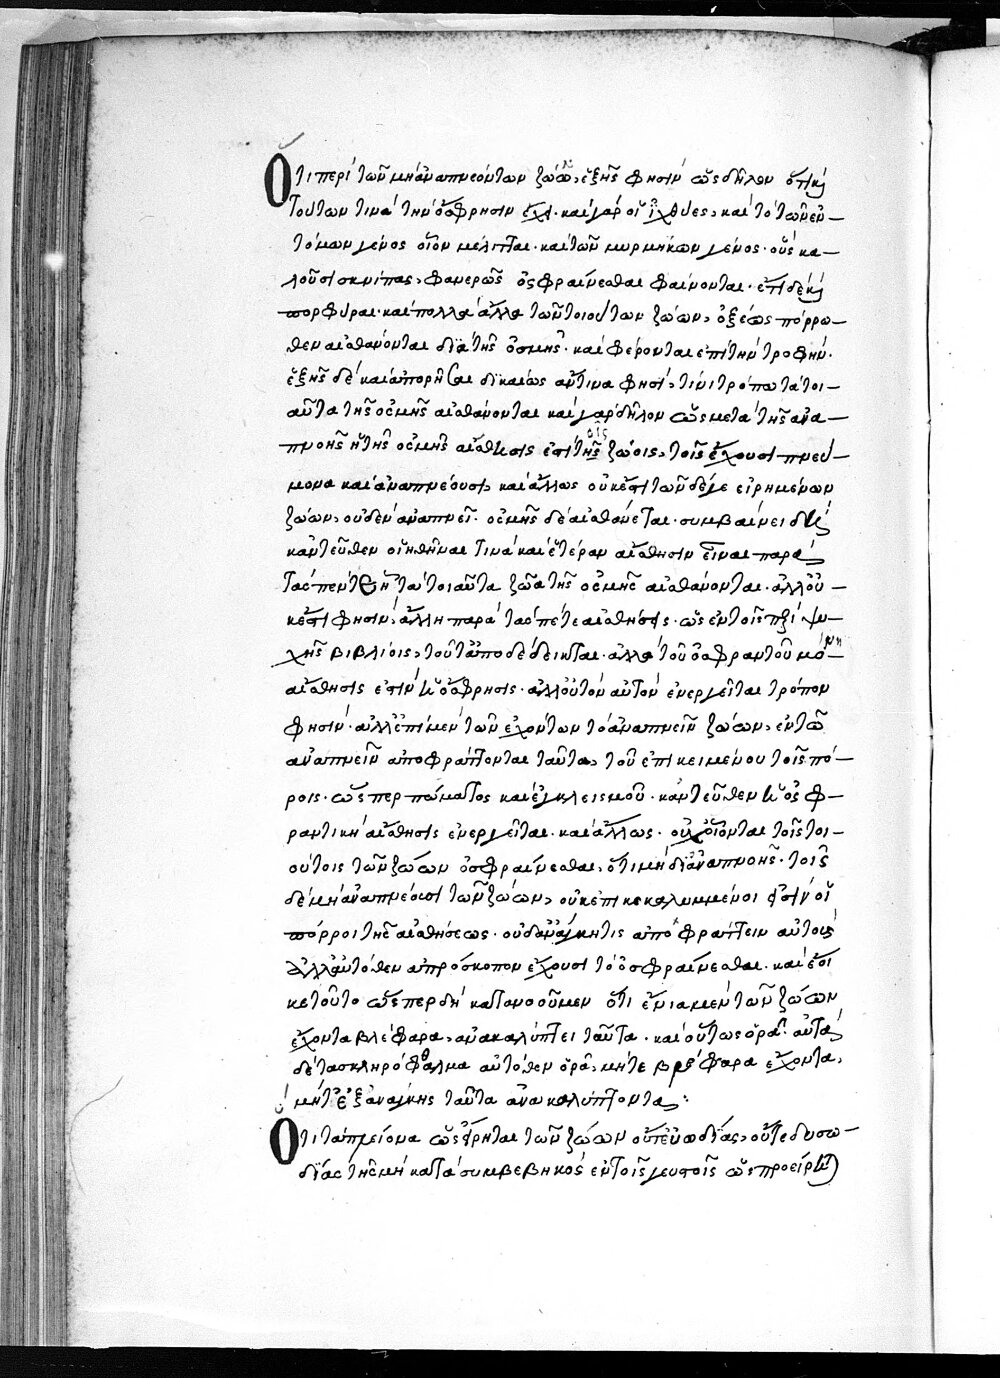 Ὅτι περὶ τῶν μὴ ἀναπνεόντων ζώων, ἑξῆς φησὶν ὡς δῆλον ὅτι καὶ
τούτων τινὰ τὴν ὄσφρησιν ἔχει· καὶ γὰρ οἱ ἰχθύες, καὶ τὸ τῶν ἐν-
τόμων γένος οἷον μέλιτται· καὶ τῶν μυρμήκων γένος· οὓς κα-
λοῦσι σκνίπας, φανερῶς ὀσφραίνεσθαι φαίνονται· ἔτι δὲ καὶ
πορφύραι· καὶ πολλὰ ἄλλα τῶν τοιούτων ζώων, ὀξέως πόρρω-
θεν αἰσθάνονται διὰ τῆς ὀσμῆς· καὶ φέρονται ἐπὶ τὴν τροφήν·
ἑξῆς δὲ καὶ ἀπορῆσαι δικαίως ἄν τινα φησὶ, τίνι τρόπω τὰ τοι-
αῦτα τῆς ὀσμῆς αἰσθάνονται καὶ γὰρ δῆλον ὡς μετὰ τῆς ἀνα-
πνοῆς ἡ τῆς ὀσμῆς αἴσθησις ἐστὶ τοῖς ζώοις, τοῖς ἔχουσι πνεύ-
μονα καὶ ἀναπνέουσι, καὶ ἄλλως οὐκ ἔστι τῶν δέ γε εἰρημένων
ζώων, οὐδὲν ἀναπνεῖ· ὀσμῆς δὲ αἰσθάνεται· συμβαίνει δὲ
κἀντεῦθεν οἰηθῆναι τινὰ καὶ ἑτέραν αἴσθησιν εἶναι παρὰ
τὰς πέντε ᾗ τὰ τοιαῦτα ζῶα τῆς ὀσμῆς αἰσθάνονται· ἀλλ' οὐ-
κ ἔστι φησὶν, ἄλλη παρὰ τὰς πέντε αἰσθήσεις· ὡς ἐν τοῖς περὶ ψυ-
χῆς βιβλίοις, τοῦτ' ἀποδέδεικται· ἀλλὰ τοῦ ὀσφραντοῦ μόνη
αἴσθησις ἐστὶν ἡ ὄσφρησις· ἀλλ' οὐ τὸν αὐτὸν ἐνεργεῖται τρόπον
φησὶν· ἀλλ' ἐπὶ μὲν τῶν ἐχόντων τὸ ἀναπνεῖν ζώων, ἐν τῶ
ἀναπνεῖν ἀποφράττονται ταῦτα, τοῦ ἐπικειμένου τοῖς πό-
ροις· ὥσπερ πώματος καὶ ἐγκλεισμοῦ· κἀντεῦθεν ἡ ὀσφ-
ραντικὴ αἴσθησις ἐνεργεῖται· καὶ ἄλλως· οὐχ οἷόνται τοῖς τοι-
ούτοις τῶν ζώων ὀσφραίνεσθαι, ὅτι μὴ δι' ἀναπνοῆς· τοῖς
δὲ μὴ ἀναπνέουσι τῶν ζώων, οὐκ ἐπικεκαλυμμένοι εἰσὶν οἱ
πόρροι τῆς αἰσθήσεως· οὐδ' ἀνάγκη τις ἀποφράττειν αὐτοὺς
ἀλλ' αὐτόθεν ἀπρόσκοπον ἔχουσι τὸ ὀσφραίνεσθαι· καὶ ἔοι-
κε τοῦτο ὥσπερ δὴ κατανοοῦμεν ὅτι ἔνια μὲν τῶν ζώων
ἔχοντα βλέφαρα, ἀνακαλύπτει ταῦτα· καὶ οὕτως ὁρᾶ· αὐτὰ
δὲ τὰ σκληρόφθαλμα αὐτόθεν ὁρᾶ, μήτε βλέφαρα ἔχοντα,
μήτ' ἐξ ἀνάγκης ταῦτα ἀνακαλύπτοντα:
Ὅτι τὰ πλείονα ὡς εἴρηται τῶν ζώων οὔτ' εὐωδίας, οὔτε δυσω-
δίας τῆς μὴ κατὰ συμβεβηκὸς ἐν τοῖς γευστοῖς ὡς προείρηται